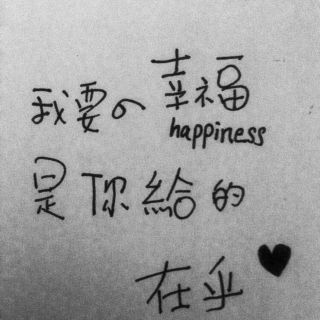 我要の幸福
happiness
是你給的
在乎